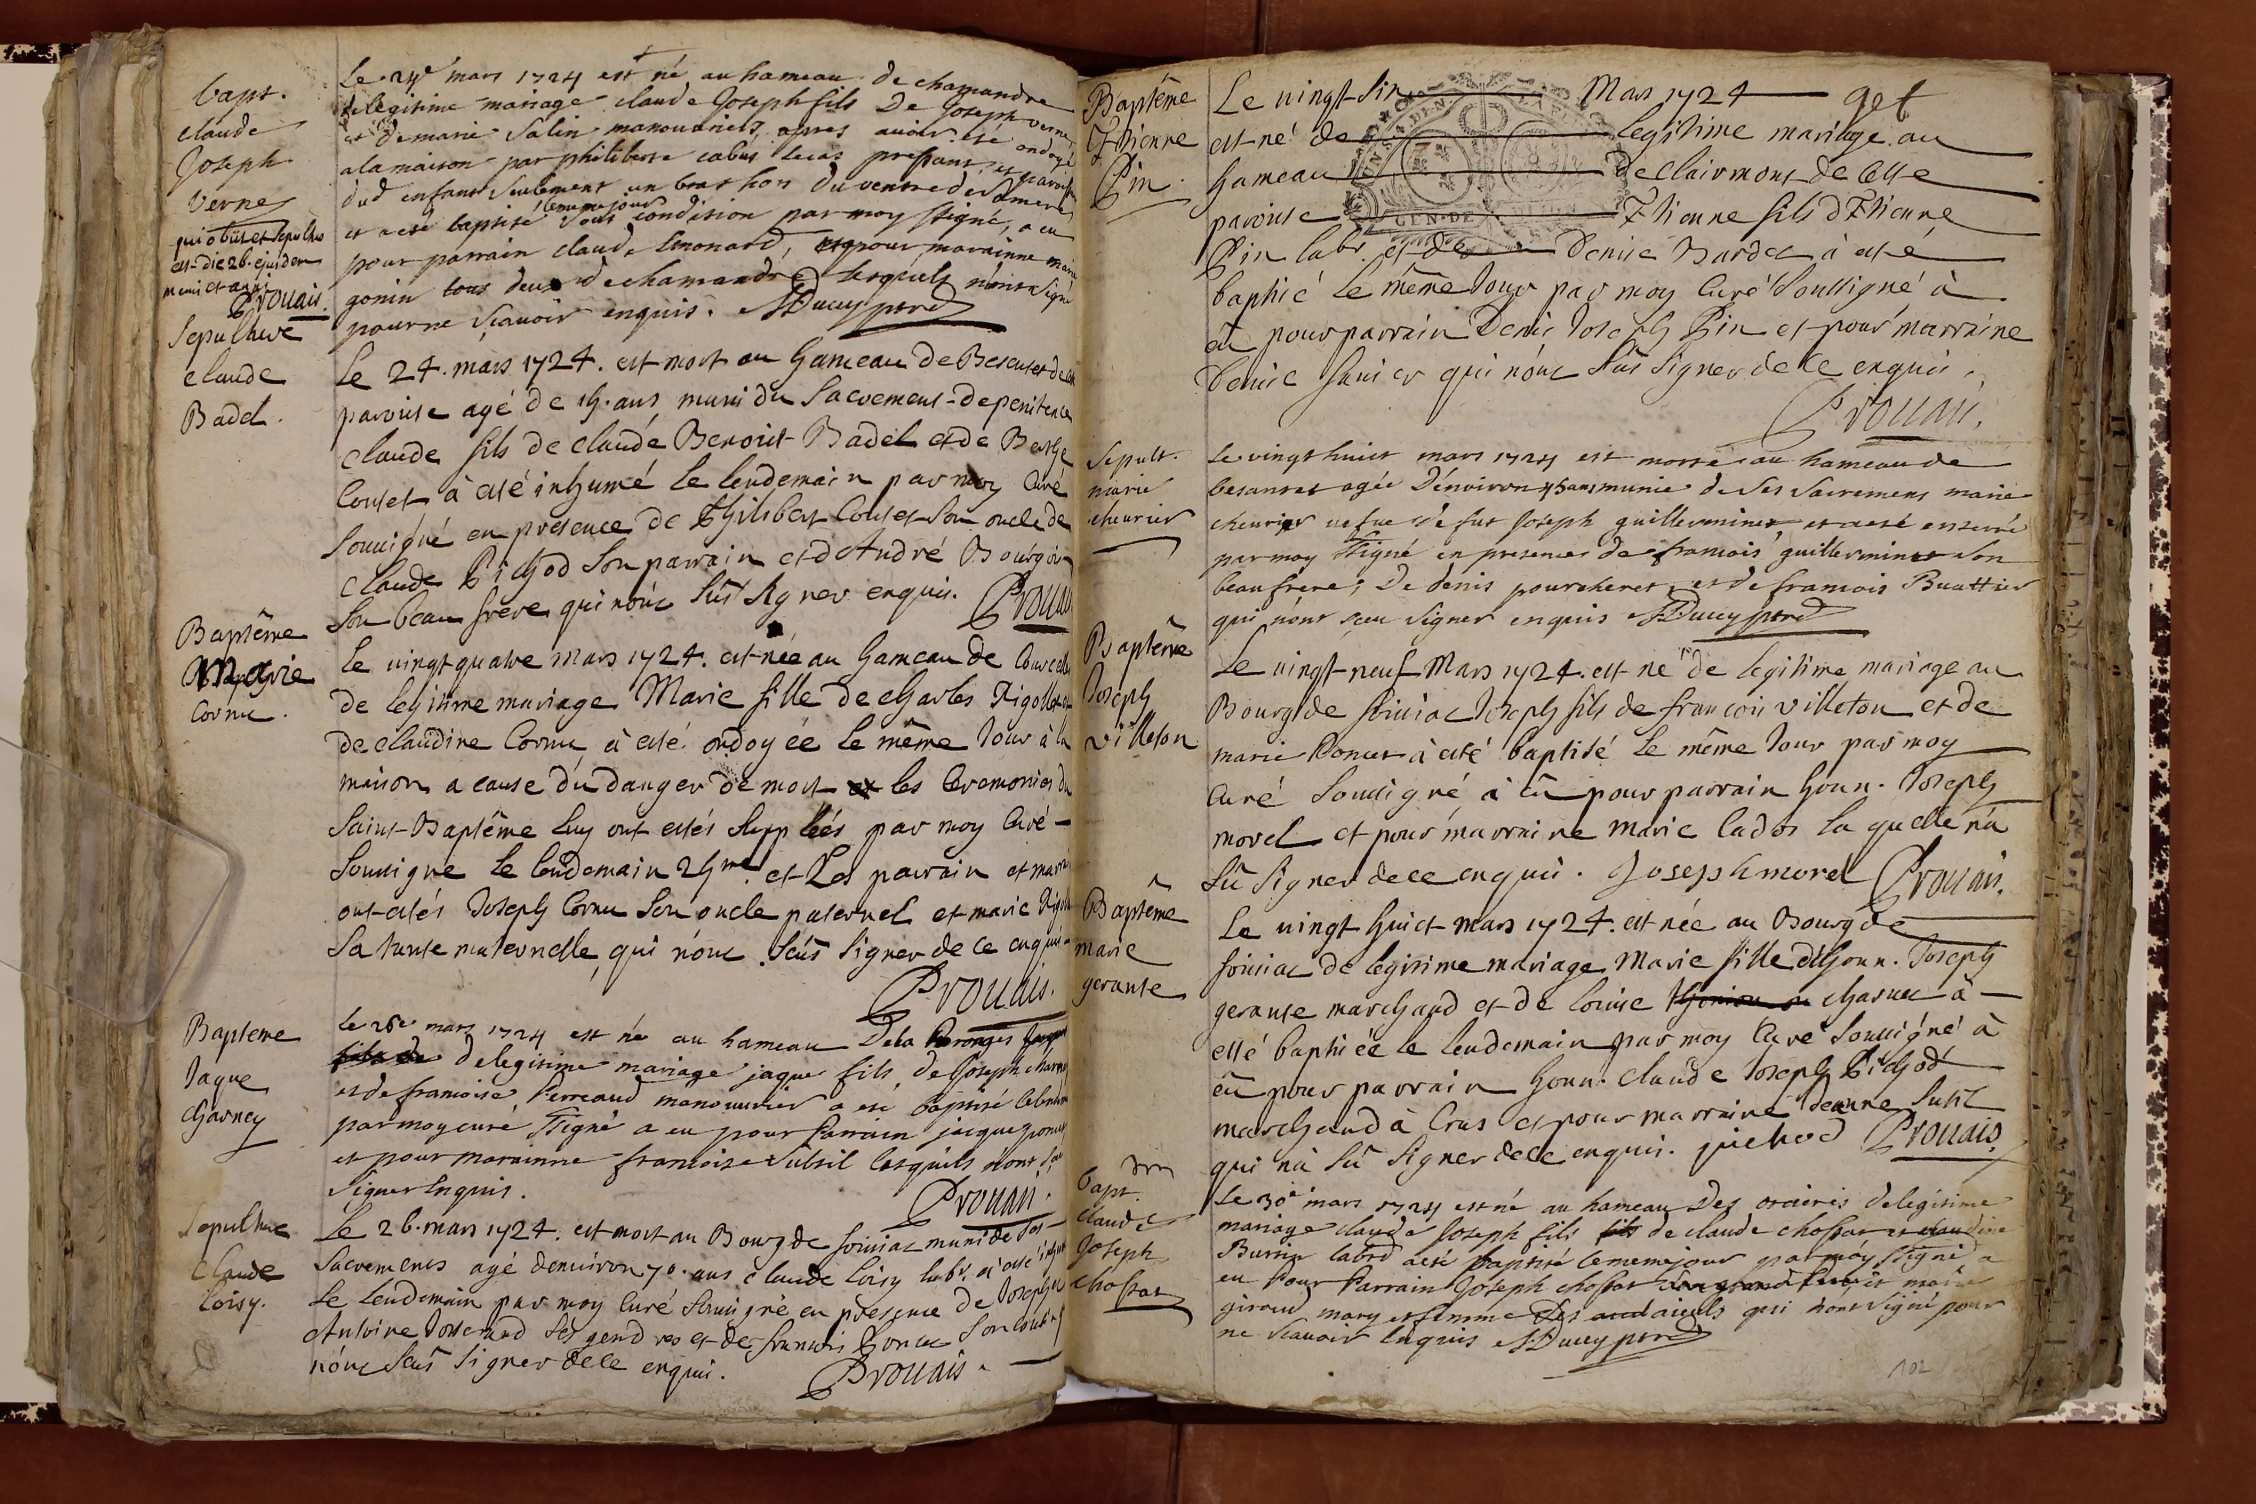 bapt.
claude
Joseph
verne
qui obiit et sepultus
est die 26. ejusdem
mensis et anni
Prouais.
Le 24e mars 1724 est né au hameau de chamandre
de legitime mariage claude Joseph fils De Joseph verne
et de marie Salin manouvriers, apres avoir esté ondoyé
a la maison par philiberte cabus
dud enfant seulement un bras hors du ventre de sa mere
et a esté baptisé le meme jour sous condition par moy ssigné, a eu
pour parrain claude Leonard, et pour marainne marie
gonin tous deux de chamandre lesquels n'ont signé
pour ne scavoir enquis. Ducuy ptre
Sepulture
claude
Badel.
Le 24. mars 1724. est mort au hameau de Besentet de cette
paroisse agé de 15. ans muni du Sacrement de penitence
claude fils de claude Benoist Badel et de Berthe
Contet à esté inhumé le lendemain par moy Curé
soussigné en presence de Philibert Contet son oncle de
claude Pichod son parrain et d'André Bourgeois
son beau frere qui n'ont sus signer enquis. Prouais
Baptême
Marie
Cornu.
Le vingt quatre mars 1724. est née au hameau de Courcelle
de legitime mariage Marie fille de charles Rigollet et
de claudine Cornu à esté ondoyée le même Jour à la
maison a cause du danger de mort les Ceremonies du
Saint Baptême luy ont estés supplées par moy Curé
soussigne le lendemain 25me. et Les parrain et marraine
ont estés Joseph Cornu son oncle paternel et marie Rigollet
sa tante maternelle, qui n'ont sceus signer de ce enquis
Prouais.
Bapteme
Jaque
Charney
Le 26e mars 1724 est né au hameau De la
de legitime mariage jaque fils de Joseph charney
et de francoise Perreaud manouvrier a esté baptisé le meme
par moy curé ssigné a eu pour Parrain jacque poncet
et pour marainne francoise Subtil lesquels n'ont sceu
signer Enquis.
Prouais.
Sepulture
Claude
Loisy.
Le 26. mars 1724. est mort au Bourg de foissiac muni de ses
Sacremens agé denviron 70. ans claude Loisy labr. à esté inhumé
le lendemain par moy Curé soussigné en presence de Joseph et
Antoine Josserand ses gendres et de francois Poncet son
n'ont sceus signer de ce enquis. Prouais.
Baptême
Ethienne
Pin.
Le vingt-six Mars 1724
est né de legitime mariage au
hameau de clairmont de cette
paroisse Ethienne fils d'Ethienne
Pin labr. et de Denise Bardet à esté
baptisé le même Jour par moy Curé Soussigné à
eu pour parrain Denis Joseph Pin et pour marraine
Denise Janier qui n'ont sus signer de ce enquis.
Prouais.
Sepult.
marie
cheurier
Le vingt huict mars 1724 est morte au hameau de
besantet agée D'environ ans munie de Ses Sacremens marie
cheurier vefue de fut Joseph guillerminet et a esté enterrée
par moy ssigné en presence de francois guillerminet son
beaufrere, De denis pourcheret et de francois Buattier
qui n'ont sceu signer enquis Ducuy ptre
Baptême
Joseph
villeton
Le vingt-neuf Mars 1724. est né de legitime mariage au
Bourg de foissiac Joseph fils de francois villeton et de
marie Poncet à esté baptisé le même Jour par moy
Curé Soussigné à eû pour parrain honn. Joseph
morel et pour marraine marie Cadot la quelle n'a
sû signer de ce enquis. Joseph morel Prouais.
Baptême
marie
gerante
Le vingt huict mars 1724. est née au Bourg de
foissiac de legitime mariage Marie fille d'honn. Joseph
gerante marchand et de Louise charuet à
esté baptisée le lendemain par moy Curé Soussigné à
eû pour parrain honn. claude Joseph Pichod
marchand à Cras et pour marraine Jeanne Sutil
qui n'a sû signer de ce enquis. pichod Prouais.
bapt.
claude
Joseph
chossat
Le 30e mars 1724 est né au hameau Des oraieris de legitime
mariage claude Joseph fils de claude chossat et claudine
Burrin labrd a esté baptisé le meme jour par moy ssigné a
eu Pour Parrain Joseph chossat et marie
giroud mary et femme Ses aieuls qui n'ont signé pour
ne scavoir Enquis Ducuy ptre
102